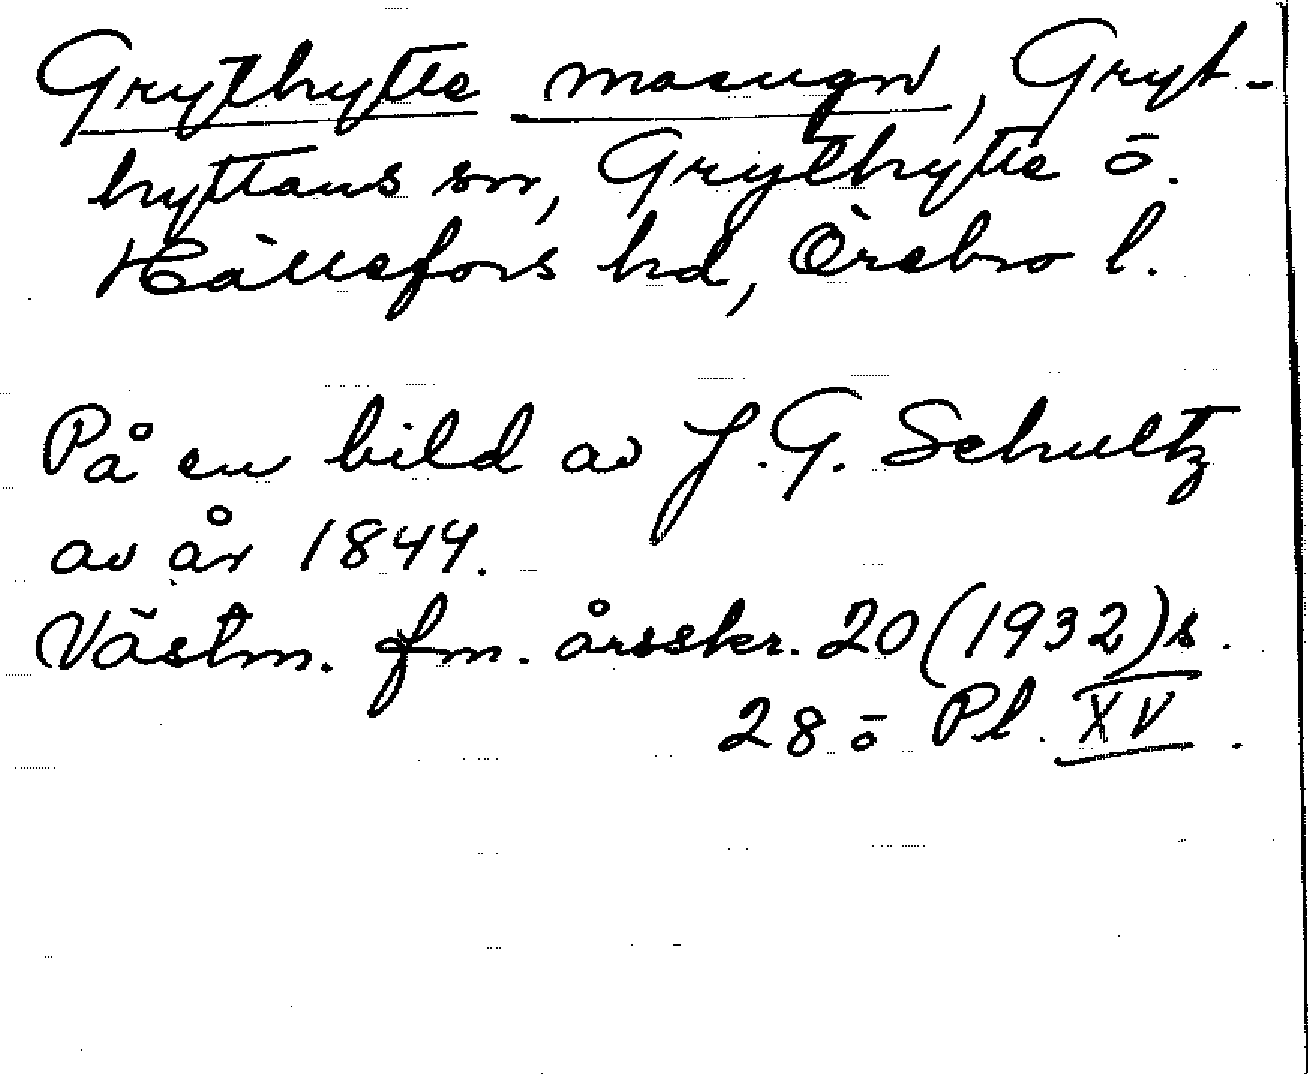 Grythytte masugn, Gryt-
hyttans sn, Grythytte ō.
Hällefors hd, Örebro l.
På en bild av J. G. Schultz
av år 1844.
Västm. fm. årsskr. 20 (1932) s.
28 ō Pl. XV.